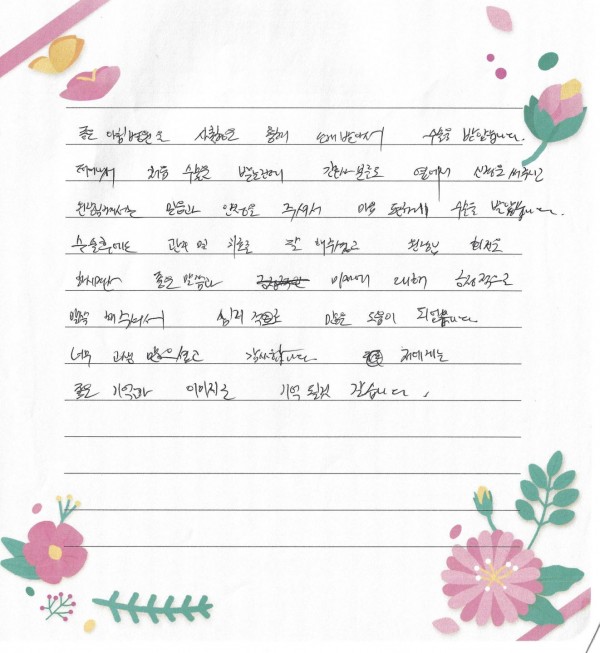 좋은 아침병원으로 사람들을 통해 소개받아서 수술을 받았습니다.
태어나서 처음 수술을 받는건데 간호사분들도 옆에서 신경을 써주시고
원장님께서는 믿음과 안정을 주셔서 마음 편하게 수술을 받았습니다.
수술후에도 관리 및 치료로 잘 해주셨고 원장님 회진도
하시면서 좋은 말씀과 미래에 대해 긍정적으로
말씀 해주셔서 심리적으로 많은 도움이 되었습니다.
너무 고생 많으셨고 감사합니다. 저에게는
좋은 기억과 이미지로 기억 될것 같습니다.